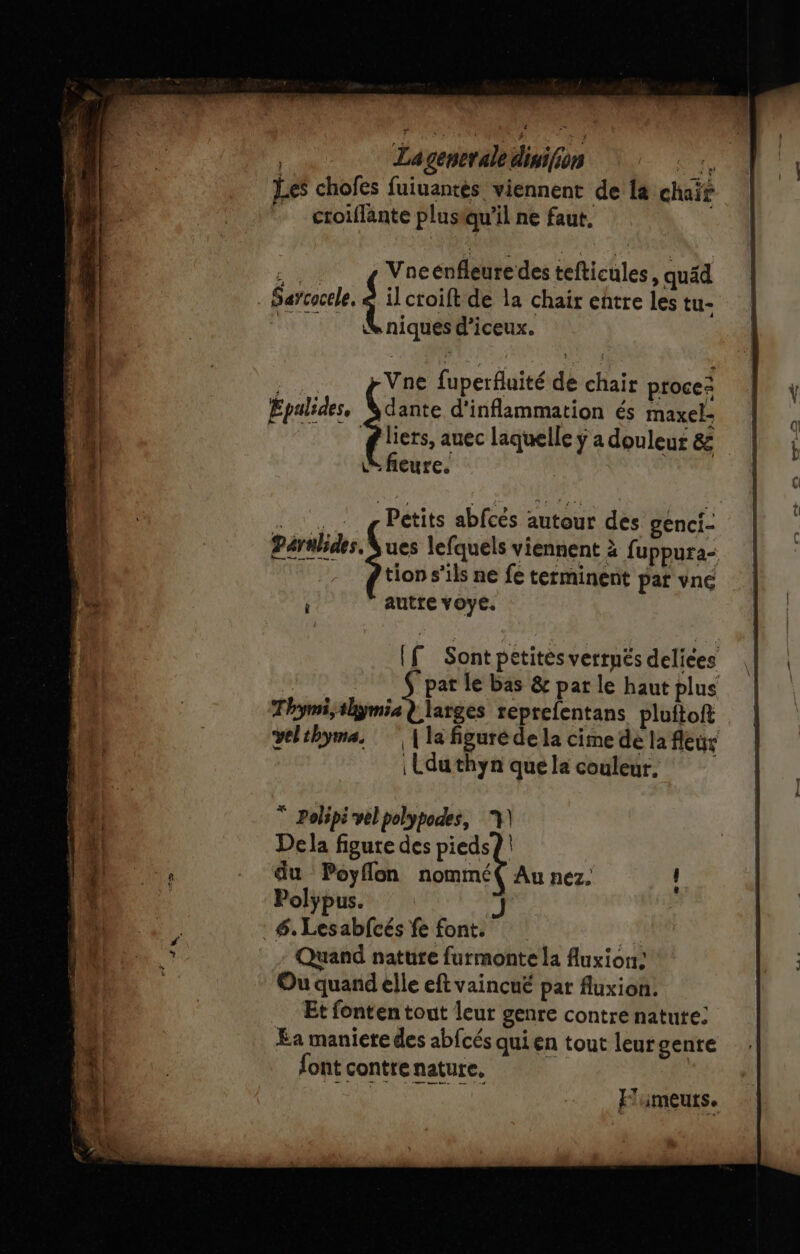 La generale diuiſion
Les choſes ſuiuantes viennent de la chair
croiſſante plus qu'il ne faut.
Vne enfleure des teſticules, quãd
Sarcocele. il croiſt de la chair entre les tu-
niques d'iceux.
Vne ſuperfluité de chair proce-
Epulides. dante d'inflammation és maxel-
liers, auec laquelle y a douleur &
fieure.
Petits abſcés autour des genci-
Parulides. ues leſquels viennent à ſuppura-
tion s'ils ne ſe terminent par vne
autre voye.
Sont petites verruës deliées
par le bas & par le haut plus
Thymi, thymia larges repreſentans pluſtoſt
vel thyma. la figure de la cime de la fleur
du thyn que la couleur.
* Polipi vel polypodes,
De la figure des pieds
du Poyſſon nommé Au nez.
Polypus.
6. Les abſcés ſe font.
Quand nature ſurmonte la fluxion;
Ou quand elle eſt vaincuë par fluxion.
Et ſont en tout leur genre contre nature:
La maniere des abſcés qui en tout leur genre
ſont contre nature.
Humeurs.